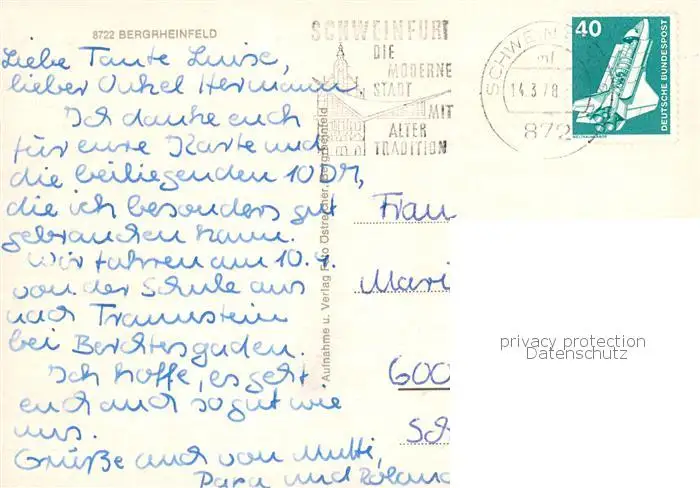 8722 BERGRHEINFELD
Liebe Tante Luise,
lieber Onkel Hermann
Ich danke euch
für eure Karte und
die beiliegenden 10 DM,
die ich besonders gut
gebrauchen kann.
Wir fahren am 10.4.
von der Schule aus
nach Traunstein
bei Berchtesgaden.
Ich hoffe, es geht
euch auch so gut wie
uns.
Grüße auch von Mutti,
Papa und Roland
Aufnahme u. Verlag Foto Ostreicher, Bergrheinfeld
SCHWEINFURT
DIE
MODERNE
STADT
MIT
ALTER
TRADITION
SCHWEINF
mf
14.3.78
872
40
DEUTSCHE BUNDESPOST
WELTRAUMLABOR
Frau
Mari
600
Sch
privacy protection
Datenschutz